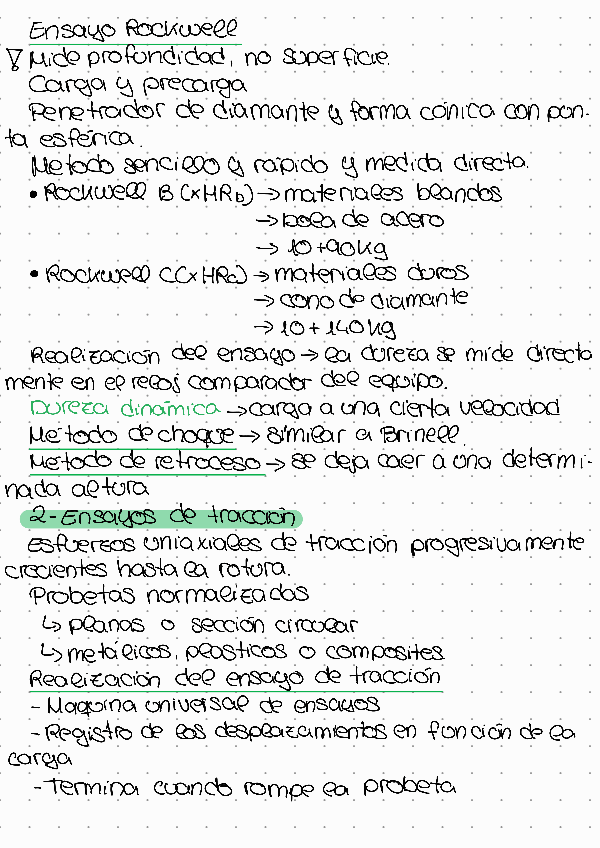 Ensayo Rockwell
Mide profundidad, no superficie.
Carga y precarga
Penetrador de diamante y forma cónica con pun-
ta esférica.
Metodo sencillo y rápido y medida directa.
• Rockwell B (xHRb) → materiales blandos
→ bola de acero
→ 10+90kg
• Rockwell C (xHRc) → materiales duros
→ cono de diamante
→ 10+140kg
Realización del ensayo → la dureza se mide directa
mente en el reloj comparador del equipo.
Dureza dinámica → carga a una cierta velocidad
Método de choque → similar a Brinell.
Método de retroceso → se deja caer a una determi-
nada altura
2-Ensayos de tracción
Esfuerzos uniaxiales de tracción progresivamente
crecientes hasta la rotura.
Probetas normalizadas
↳ planas o sección circular
↳ metálicos, plásticos o composites
Realización del ensayo de tracción
- Maquina universal de ensayos
- Registro de los desplazamientos en función de la
carga
- Termina cuando rompe la probeta